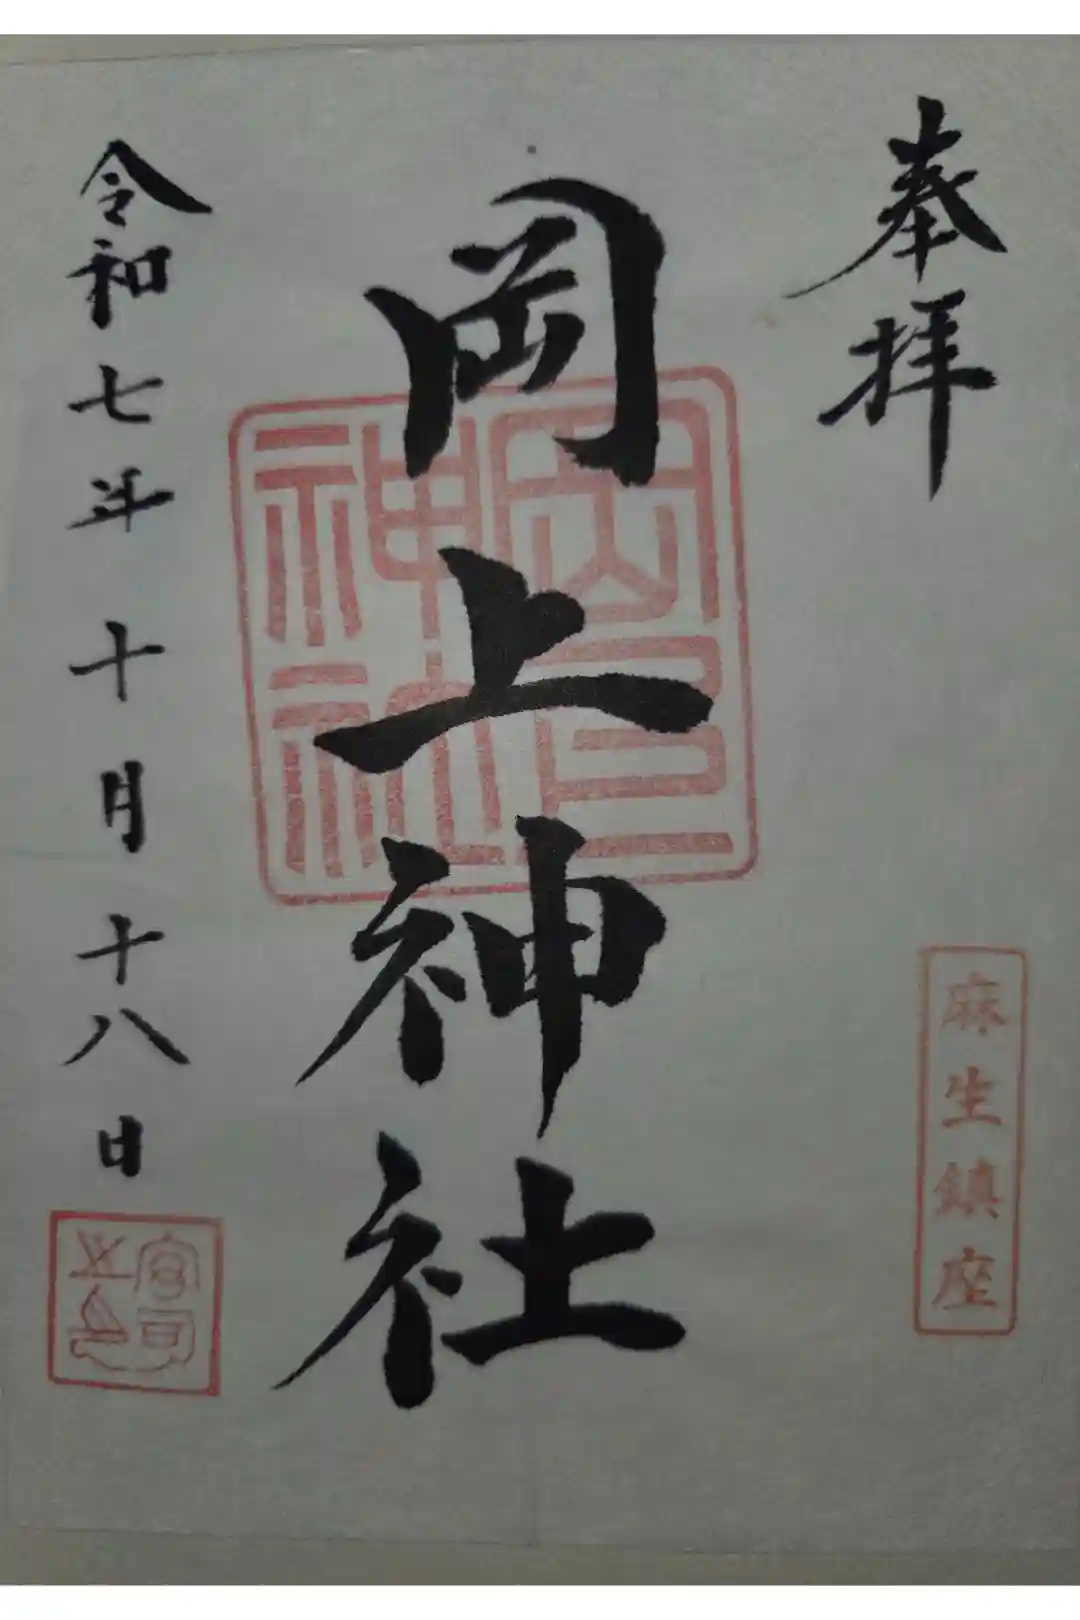 奉拝
麻生鎮座
岡上神社
岡上神社
令和七年十月十八日
宮司之印